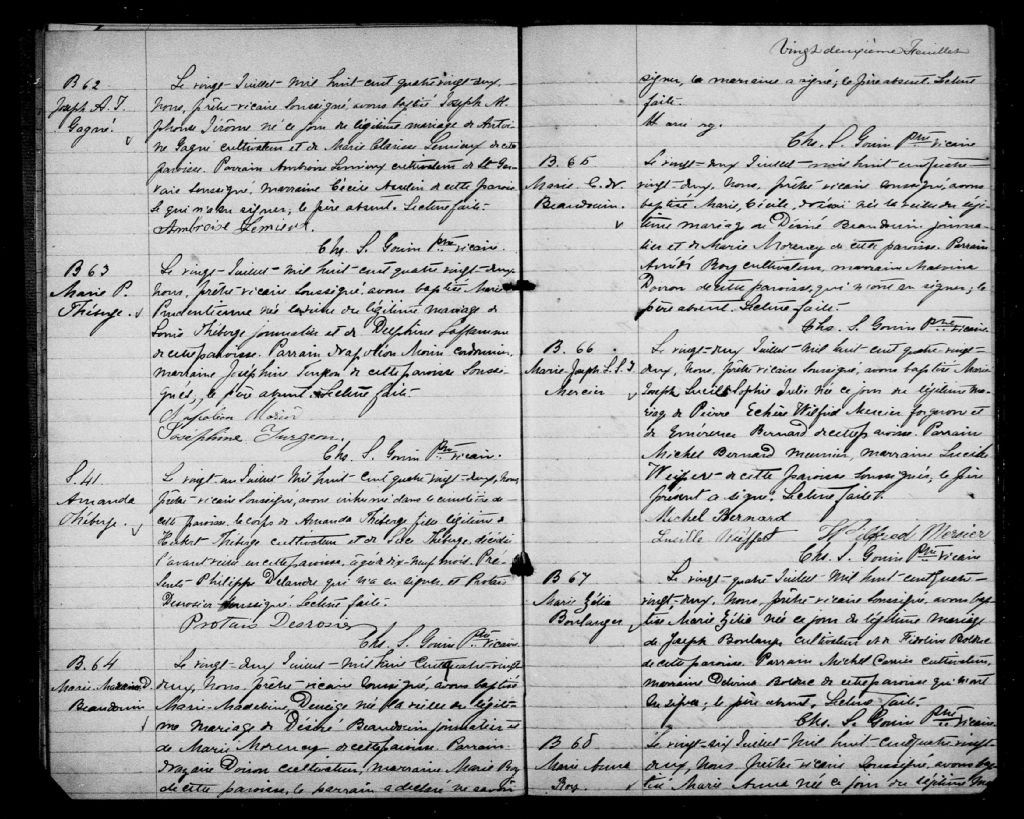 B 62
Joseph A. J.
Gagné.
Le vingt Juillet mil huit cent quatre vingt-deux,
Nous, prêtre vicaire soussigné, avons baptisé Joseph Al
phonse Jérôme né ce jour du légitime mariage de Antoi
ne Gagné cultivateur et de Marie Clarisse Lemieux de cette
paroisse. Parrain Ambroise Lemieux cultivateur de St Ger
vais soussigné, marraine Cécile de cette parois
se qui n'a su signer; le père absent. Lecture faite.
Ambroise Lémieux
Chs. S. Gouin Ptre vicaire.
B 63
Marie P.
Théberge.
Le vingt Juillet mil huit cent quatre vingt-deux
Nous, prêtre vicaire soussigné, avons baptisé Marie
Prudentienne née la veille du légitime mariage de
Louis Théberge journalier et de Delphine
de cette paroisse. Parrain Napoléon Morin cordonnier,
marraine Joséphine Turgeon de cette paroisse soussi-
gnés, le père absent. Lecture faite.
Napoléon Morin
Joséphine Turgeon.
Chs. S. Gouin Ptre vicaire.
S. 41
Amanda
Théberge.
Le vingt un Juillet mil huit cent quatre vingt-deux, Nous
prêtre vicaire soussigné, avons inhumé dans le cimetière de
cette paroisse, le corps de Amanda Théberge fille légitime de
Théberge cultivateur et de Théberge, décédée
l'avant veille en cette paroisse, agée dix-neuf mois. Pré-
sents Philippe qui n'a su signer et Protais
Desrosier soussigné. Lecture faite.
Protais Desrosier
Chs. S. Gouin Ptre vicaire
B. 64
Marie Madeleine D.
Beaudouin
Le vingt-deux Juillet mil huit cent quatre vingt
deux, Nous, prêtre vicaire soussigné, avons baptisé
Marie Madeleine, née la veille du légiti-
me mariage de Désiré Beaudouin journalier et
de Marie Morency de cette paroisse. Parrain
Nazaire Doiron cultivateur, marraine Marie Roy
de cette paroisse, le parrain a déclaré ne savoir
Vingt deuxième Feuillet
signer, la marraine a signé; le père absent. Lecture
faite.
Chs. S. Gouin Ptre vicaire
B. 65
Marie C. N.
Beaudouin.
Le vingt-deux Juillet mil huit cent quatre
vingt-deux, Nous, prêtre vicaire soussigné, avons
baptisé Marie, Cécile, née la veille du légi
time mariage de Désiré Beaudouin journa-
lier et de Marie Morency de cette paroisse. Parrain
Roy cultivateur, marraine Malvina
Doiron de cette paroisse, qui n'ont su signer; le
père absent. Lecture faite.
Chs. S. Gouin Ptre vicaire.
B. 66
Marie Joseph L. S. J.
Mercier
Le vingt-deux Juillet mil huit cent quatre vingt-
deux, Nous, prêtre vicaire soussigné, avons baptisé Marie
Joseph Lucille Sophie Julie née ce jour du légitime ma
riage de Pierre Wilfrid Mercier forgeron et
de Emérence Bernard de cette paroisse. Parrain
Michel Bernard meunier, marraine Lucille
de cette paroisse soussignés, le père
présent a signé. Lecture faite.
Michel Bernard
Lucille Wilfred Mercier
Chs. S. Gouin Ptre vicaire
B 67
Marie Zélia
Boulanger
Le vingt-quatre Juillet mil huit cent quatre-
vingt-deux, Nous, prêtre vicaire soussigné, avons bap
tisé Marie Zélia née ce jour du légitime mariage
de Joseph Boulanger cultivateur et de Bolduc
de cette paroisse. Parrain Michel Carrier cultivateur,
marraine Delvina Bolduc de cette paroisse qui n'ont
su signer; le père absent. Lecture faite.
Chs. S. Gouin Ptre vicaire
B 68
Marie Anna
Roy.
Le vingt-six Juillet mil huit cent quatre vingt-
deux, Nous prêtre vicaire soussigné, avons bap
tisé Marie Anna née ce jour du légitime ma